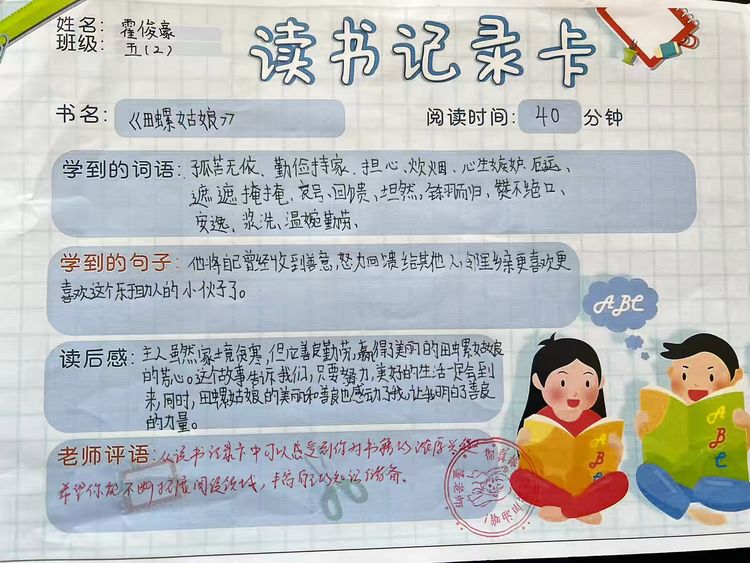 姓名：霍俊豪
班级：五（2）
读书记录卡
书名：《田螺姑娘》
阅读时间：40分钟
学到的词语：孤苦无依、勤俭持家、担心、炊烟、心生嫉妒、厄运、
遮遮掩掩、哀号、回馈、坦然、铩羽而归、赞不绝口、
安逸、浆洗、温婉勤劳、
学到的句子：他将自己曾经收到善意，努力回馈给其他人，邻里乡亲更喜欢更
喜欢这个乐于助人的小伙子了。
ABC
读后感：主人虽然家境贫寒，但心善良勤劳，赢得了美丽的田螺姑娘
的芳心。这个故事告诉我们，只要努力，美好的生活一定会到
来，同时，田螺姑娘的美丽和善良也感动了我，让我明白了善良
的力量。
A B C
A B C
老师评语：从读书记录卡中可以感受到你对书籍的浓厚兴趣
希望你能不断拓展阅读领域，丰富自己的知识储备。